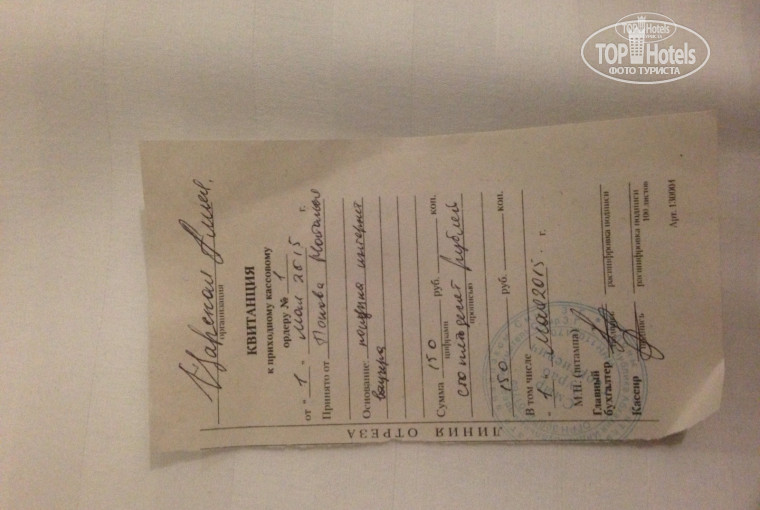 TOP Hotels
ФОТО ТУРИСТА
Царская Аллея.
организация
КВИТАНЦИЯ
к приходному кассовому
ордеру № 1
от "1" мая 2015 г.
Принято от Попова Наталья
Основание: покупка интернет
ваучера
Сумма 150 руб. коп.
цифрами
сто пятьдесят рублей
прописью
150 руб. коп.
В том числе
"1" мая 2015 г.
М.П. (штампа)
Главный
бухгалтер
подпись расшифровка подписи
Кассир
подпись расшифровка подписи
100 листов
Арт. 130004
ЛИНИЯ ОТРЕЗА